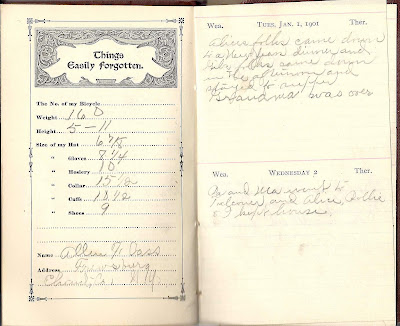 Things
Easily Forgotten.
The No. of my Bicycle
Weight 160
Height 5-11
Size of my Hat 6 7/8
" Gloves 8 1/4
" Hosiery 10
" Collar 15 1/2
" Cuffs
" Shoes 9
Name
Address
Wea. TUES. JAN. 1, 1901 Ther.
Alice folks came down
to a New Years dinner and
folks came down
in the afternoon and
stayed to supper
Grandma was over
Wea. WEDNESDAY 2 Ther.
Pa and Ma went to
and Alice, Lillie
& I kept house.